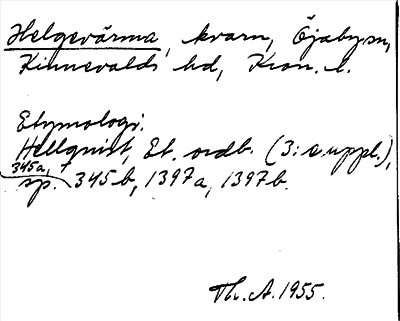 Helgevärma, kvarn, Öjabysn,
Kinnevalds hd, Kron. l.
Etymologi.
Hellquist, Et. ordb. (3: e uppl.),
345a,
sp. 345b, 1397a, 1397b.
Th. A. 1955.